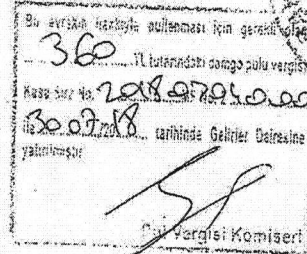 Bu evrakın hakkıyla pullanması için gerekli olan
360 TL tutarındaki damga pulu vergisi
Kasa Sıra No. 20180704000
ile 30.07.2018 tarihinde Gelirler Dairesine
yatırılmıştır.
Pul Vergisi Komiseri